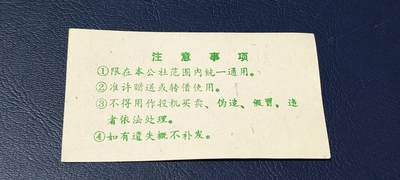 注意事项
①限在本公社范围内统一通用。
②准许赠送或转借使用。
③不得用作投机买卖、伪造、假冒。违
者依法处理。
④如有遗失概不补发。